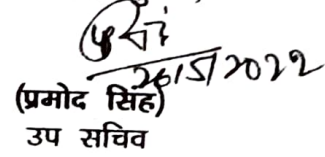 26/5/2022
(प्रमोद सिंह)
उप सचिव